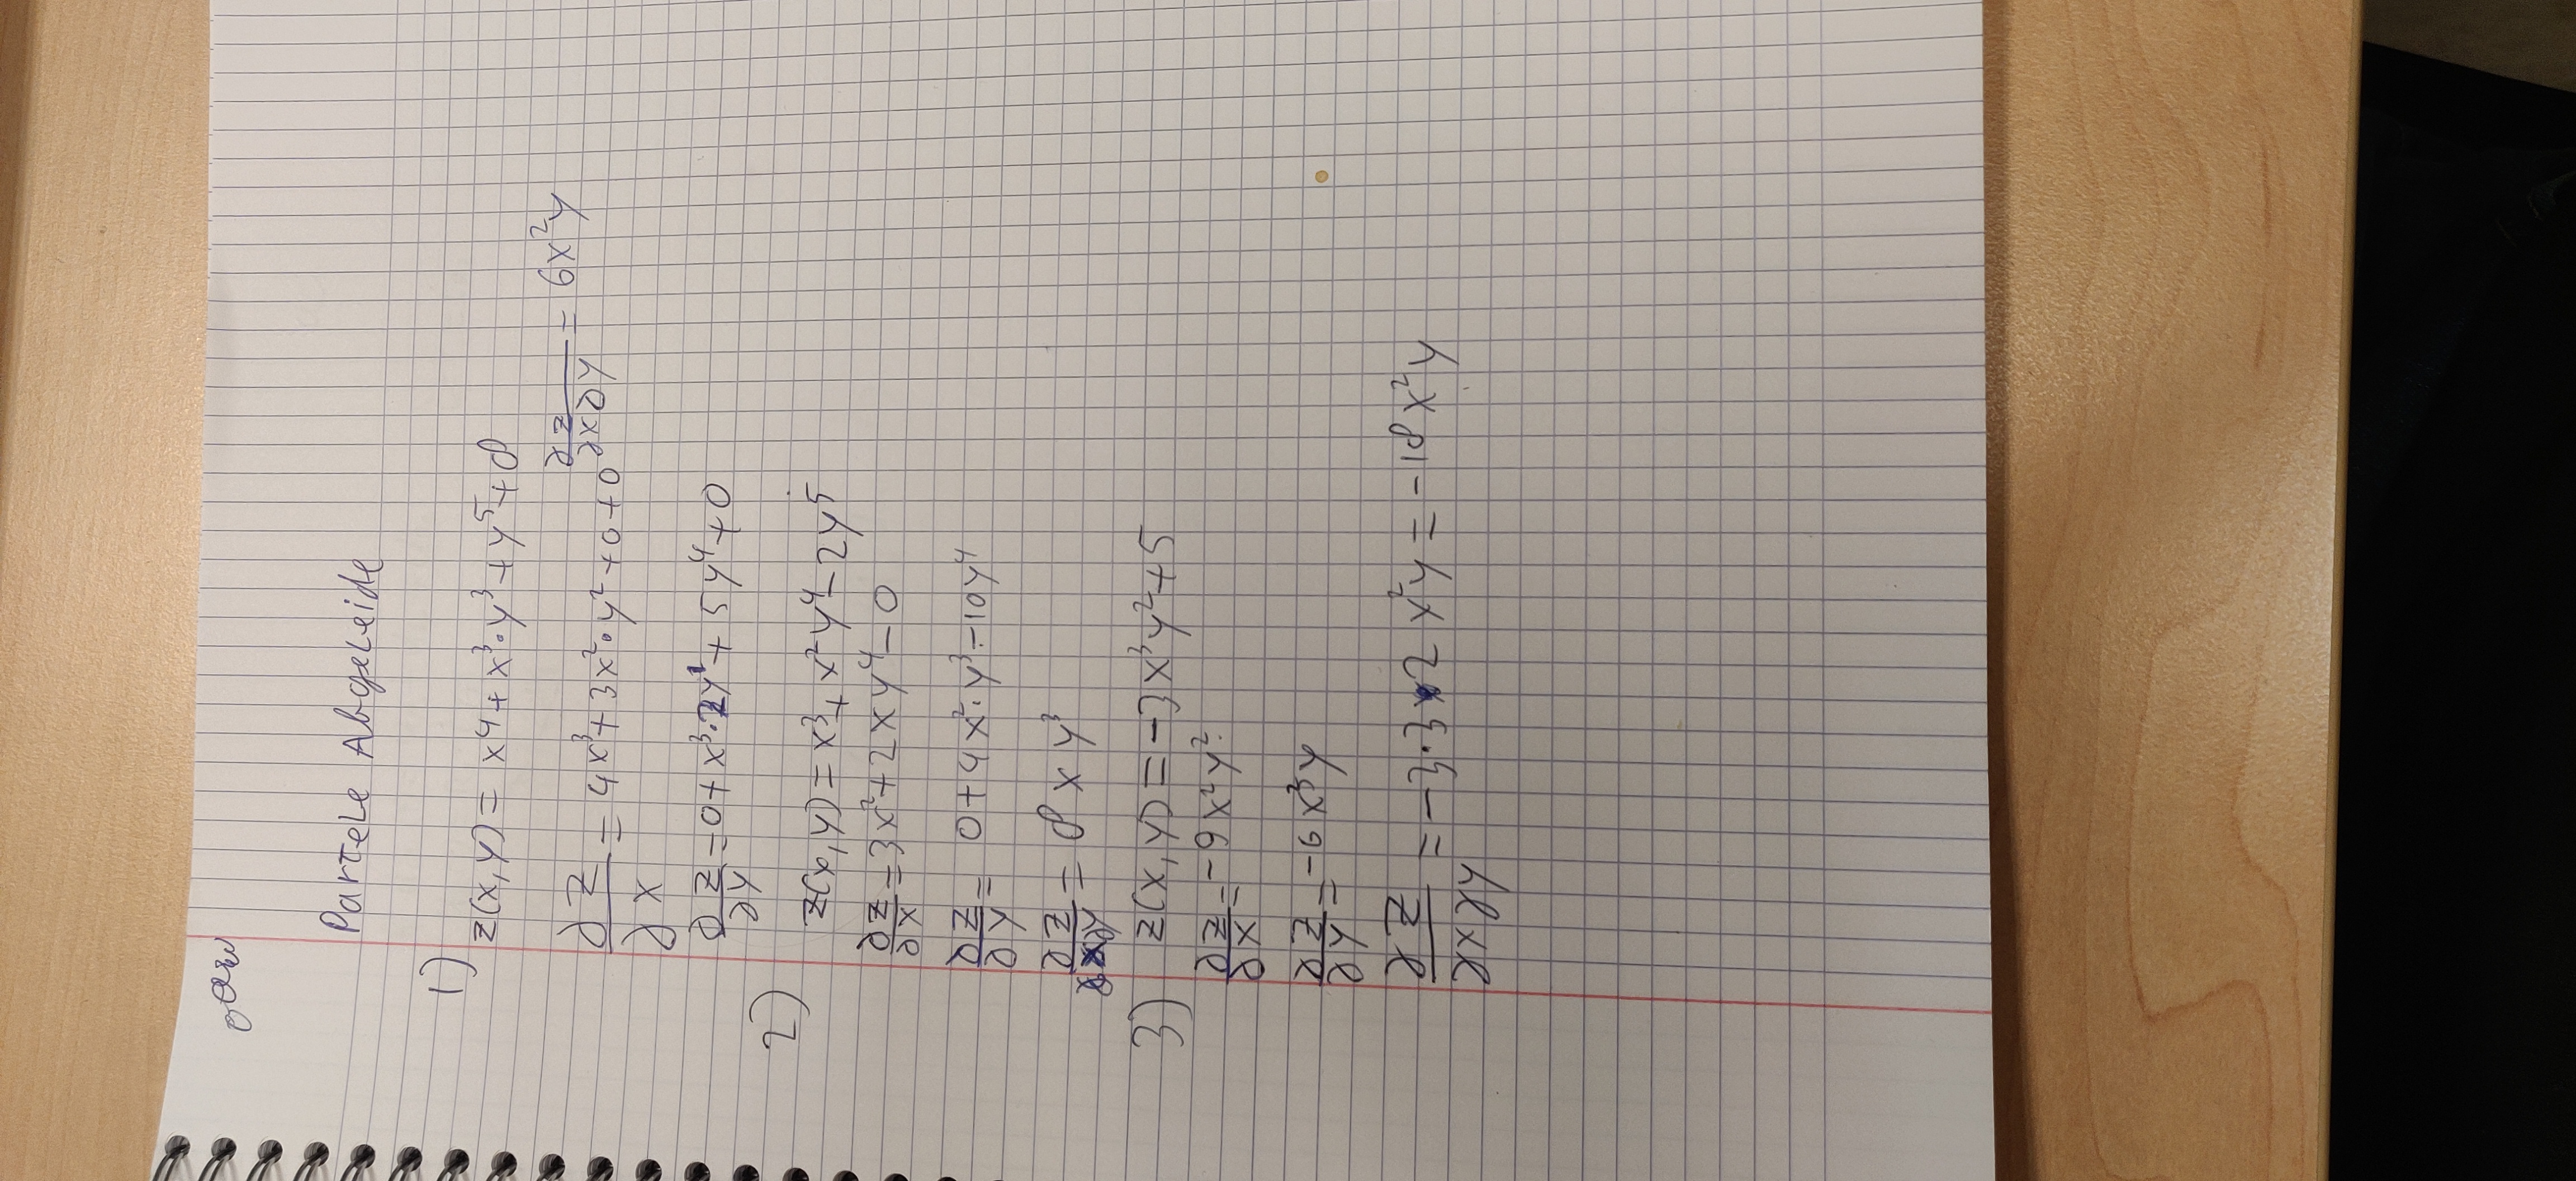 Partele Abgeleide
1)
z(x,y) = x⁴ + x³·y³ + y⁵ + 8
∂z/∂x = 4x³ + 3x²·y² + 0 + 0
∂z/∂x∂y = 6x²y
∂z/∂y = 0 + x³·2y¹ + 5y⁴ + 0
2)
z(x,y) = x³ + x²y⁴ - 2y⁵
∂z/∂x = 3x² + 2xy⁴ - 0
∂z/∂y = 0 + 4x²·y³ - 10y⁴
∂z/∂x∂y = 8xy³
3) z(x,y) = -3x³y² + 5
∂z/∂x = -9x²y²
∂z/∂y = -6x³y
∂z/∂x∂y = -3·3·2 x²y = -18x²y